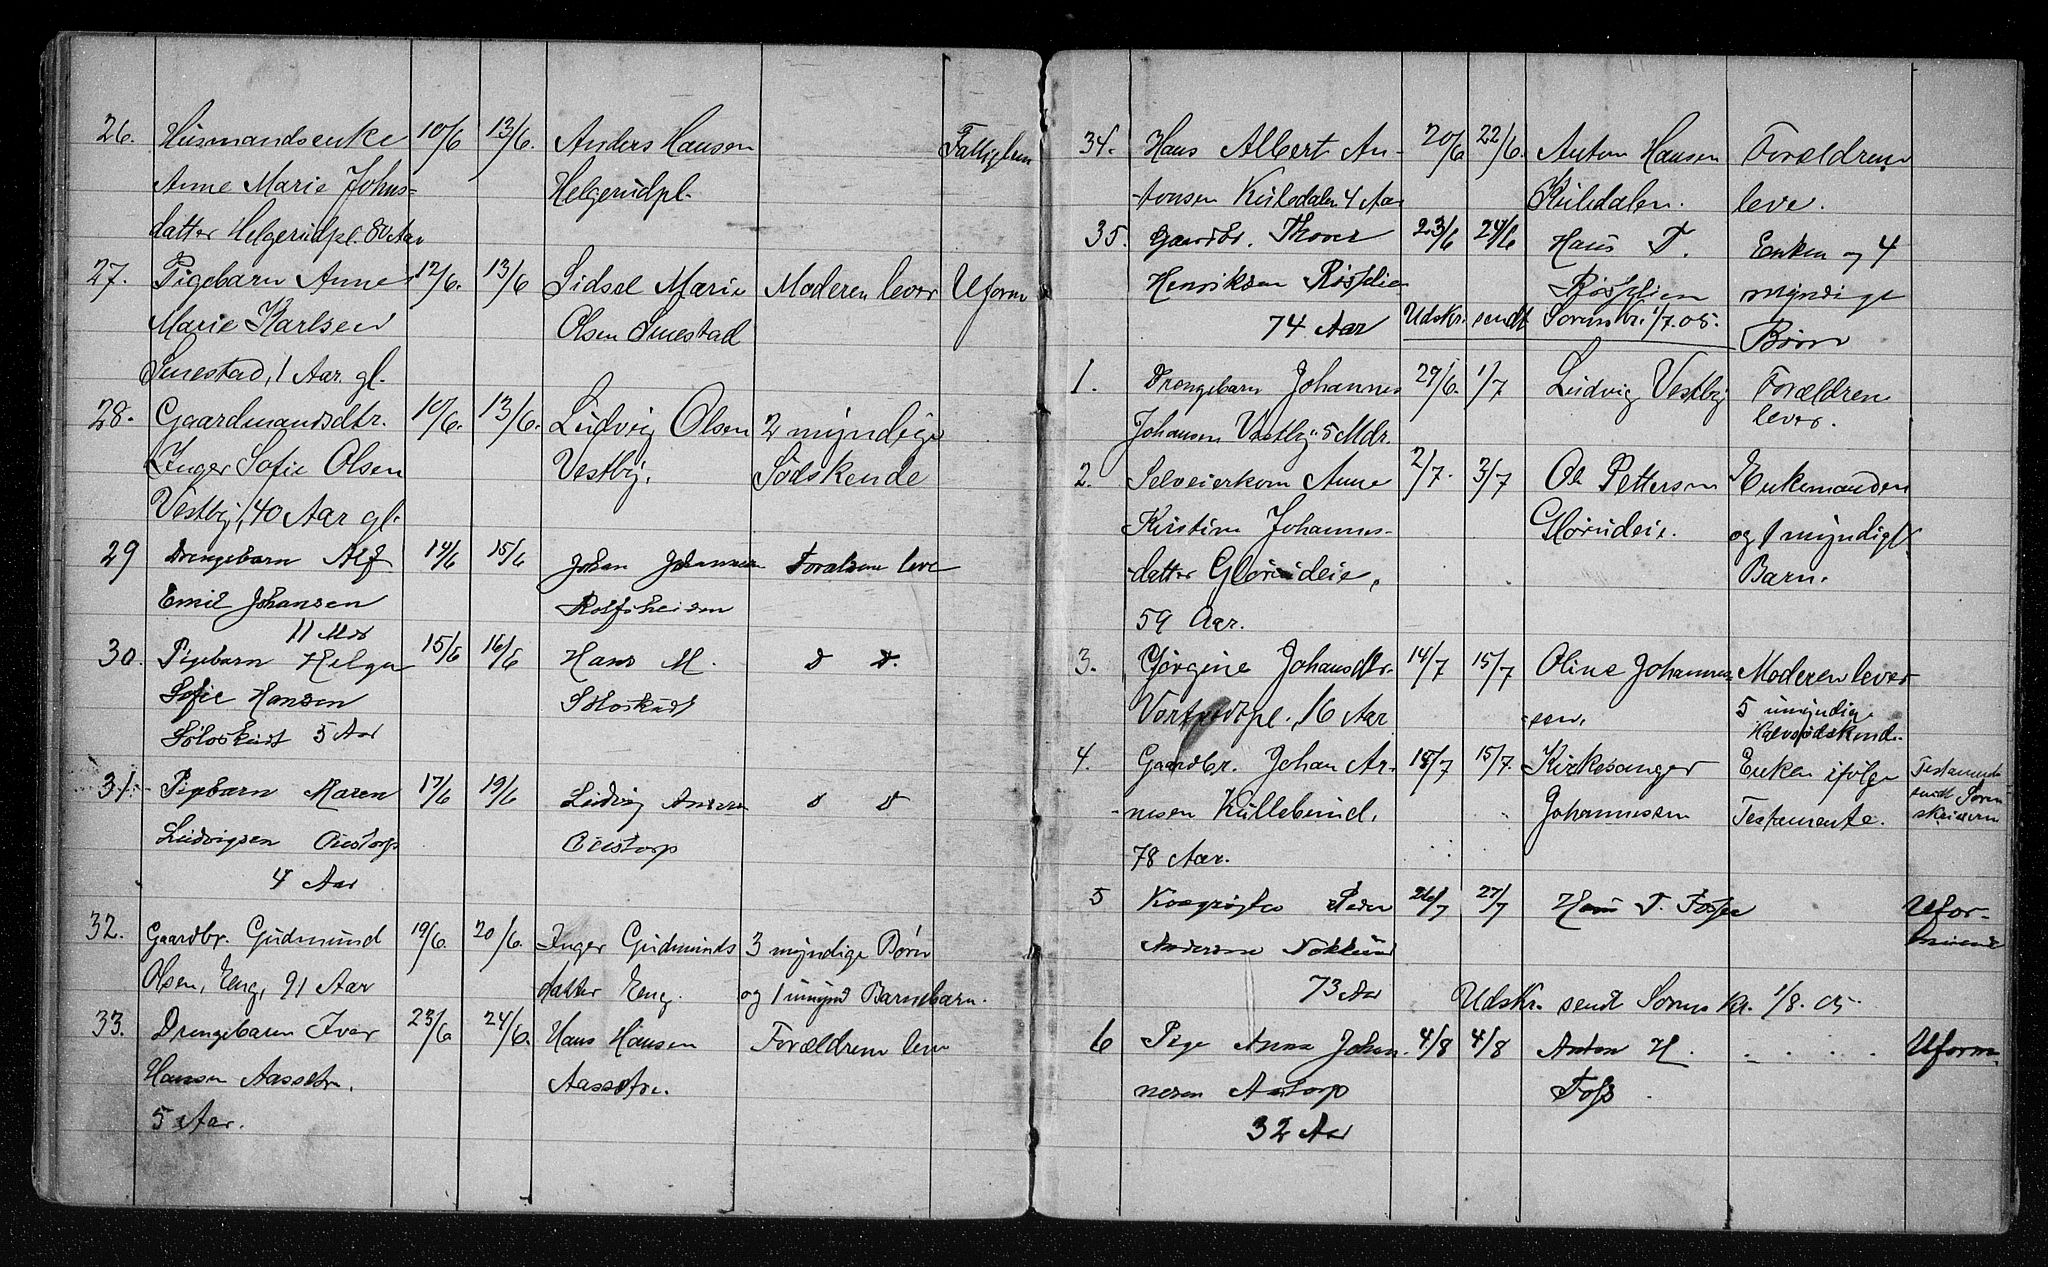 26. Husmandsenke 10/6 13/6. Anders Hansen
Anne Marie Johns- Helgerudpl.
datter Helgerudpl. 80 Aar
27. Pigebarn Anne 12/6. 13/6 Sidsel Marie Moderen lever Uform
Marie Karlsen Olsen Smestad
Smestad, 1 Aar gl.
28. Gaardmandsdtr. 10/6. 13/6. Ludvig Olsen 2 myndige
Inger Sofie Olsen Vestby. Södskende
Vestby, 40 Aar gl.
29 Drengebarn Alf 14/6 15/6 Johan Johannesen leve
Emil Johansen
11 Mdr
30. Pigebarn Helga 15/6 16/6 Hans M. d d.
Sofie Hansen
5 Aar
31. Pigebarn Maren 17/6 19/6 Ludvig d d
Ludvigsen Oustorp Oustorp
4 Aar
32. Gaardbr. Gudmund 19/6. 20/6. Inger Gudmunds 3 myndige Børn
Olsen, Eng, 91 Aar datter Eng. og 1 umynd Barnebarn.
33. Drengebarn Ivar 23/6 24/6. Hans Hansen Forældrene leve
Hansen Aassetre. Aassetre.
5 Aar.
34. Hans Albert An- 20/6 22/6. Anton Hansen Forældrene
tonsen Kulsdalen 4 Aar Kulsdalen. leve.
35. Gaardbr. Thorer 23/6 24/6 Hans T. Enken og 4
Henriksen myndige
74 Aar Udskr. sendt Sorenskr. 1/7.05. Børn
1. Drengebarn Johannes 29/6. 1/7 Ludvig Vestby Forældrene
Johansen Vestby 5 Mdr. lever.
2. Selveierkone Anne 2/7. 3/7 Ole Pettersen Enkemanden
Kristine Johannes- Glørudeie. og 1 myndigt
datter Glørudeie, Barn.
59 Aar.
3. Jørgine Johansdtr. 14/7 15/7 Oline Johannes- Moderen lever
16 Aar sen. 5 umyndige
Halvsødskende
4. Gaardbr. Johan Ar- 15/7 Kirkesanger Enken ifølge Testamente
nesen Kullebund, Johannessen Testamente. sendt Soren
78 Aar. skriveren
5 Peder 26/7 27/7 Hans T. Foss Ufor-
Andersen muende
73 Aar Udskr. sendt Sorenskr. 1/8.05.
6 Pige Anna Johan 4/8 4/8 Anton H. Uform
nesen Austorp Foss
32 Aar